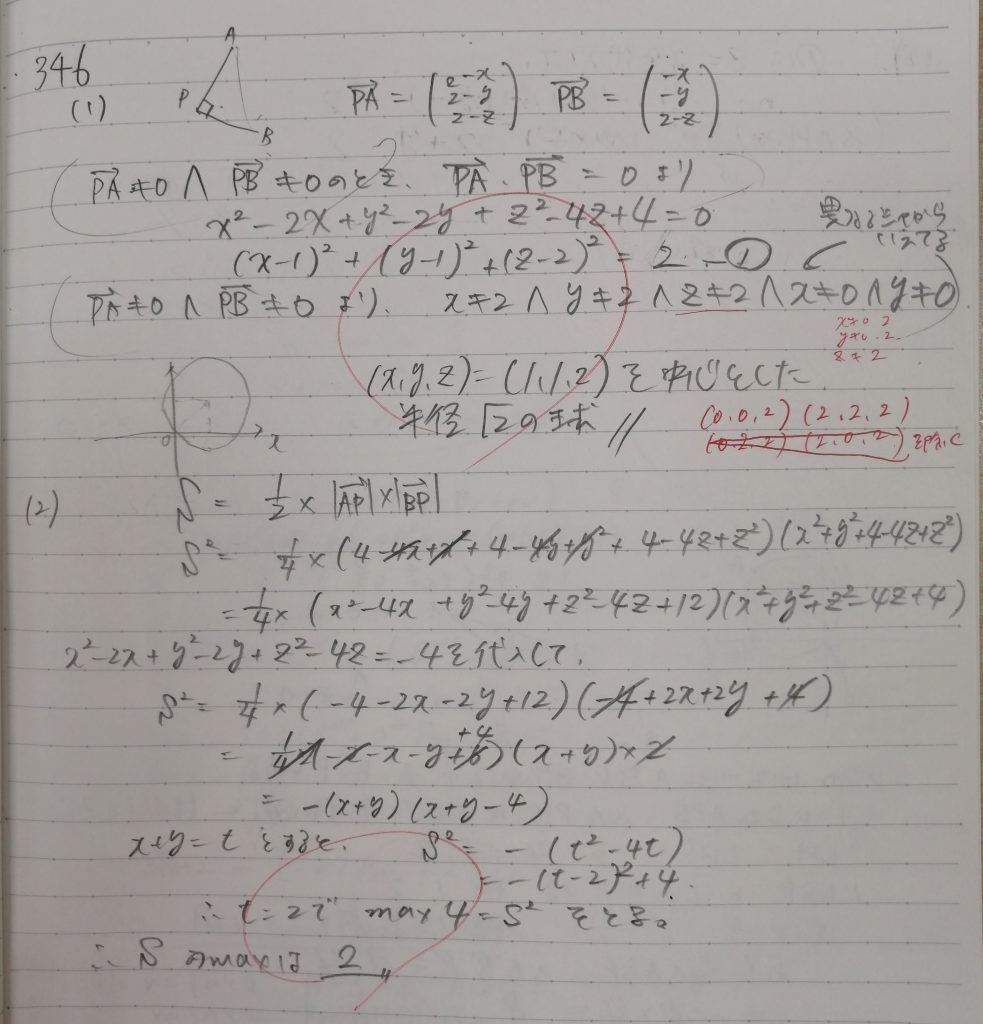 346
(1)
A
P
B
PA→ = (2-x 2-y 2-z) PB→ = (-x -y 2-z)
PA→≠0 ∧ PB→≠0のとき、 PA→・PB→ = 0 より
x²-2x+y²-2y+z²-4z+4=0
(x-1)²+(y-1)²+(z-2)² = 2 -①
異なる
PA→≠0 ∧ PB→≠0 より、 x≠2∧y≠2∧z≠2∧x≠0∧y≠0
x≠0.2
y≠0.2
z≠2
(x,y,z)=(1,1,2)を中心とした
半径√2の球 //
(0.0.2)(2.2.2)
(0.2.2)(2.0.2)を除く
0 1 x
(2) S = 1/2 × |AP→|×|BP→|
S² = 1/4 × (4-4x+x²+4-4y+y²+4-4z+z²)(x²+y²+4-4z+z²)
= 1/4 × (x²-4x+y²-4y+z²-4z+12)(x²+y²+z²-4z+4)
x²-2x+y²-2y+z²-4z=-4を代入して、
S² = 1/4 × (-4-2x-2y+12)(-4+2x+2y+4)
= (-x-y+4)(x+y)×2
= -(x+y)(x+y-4)
x+y=t とすると、 S² = -(t²-4t)
= -(t-2)²+4.
∴ t=2で max 4=S² をとる。
∴ Sのmaxは 2 //